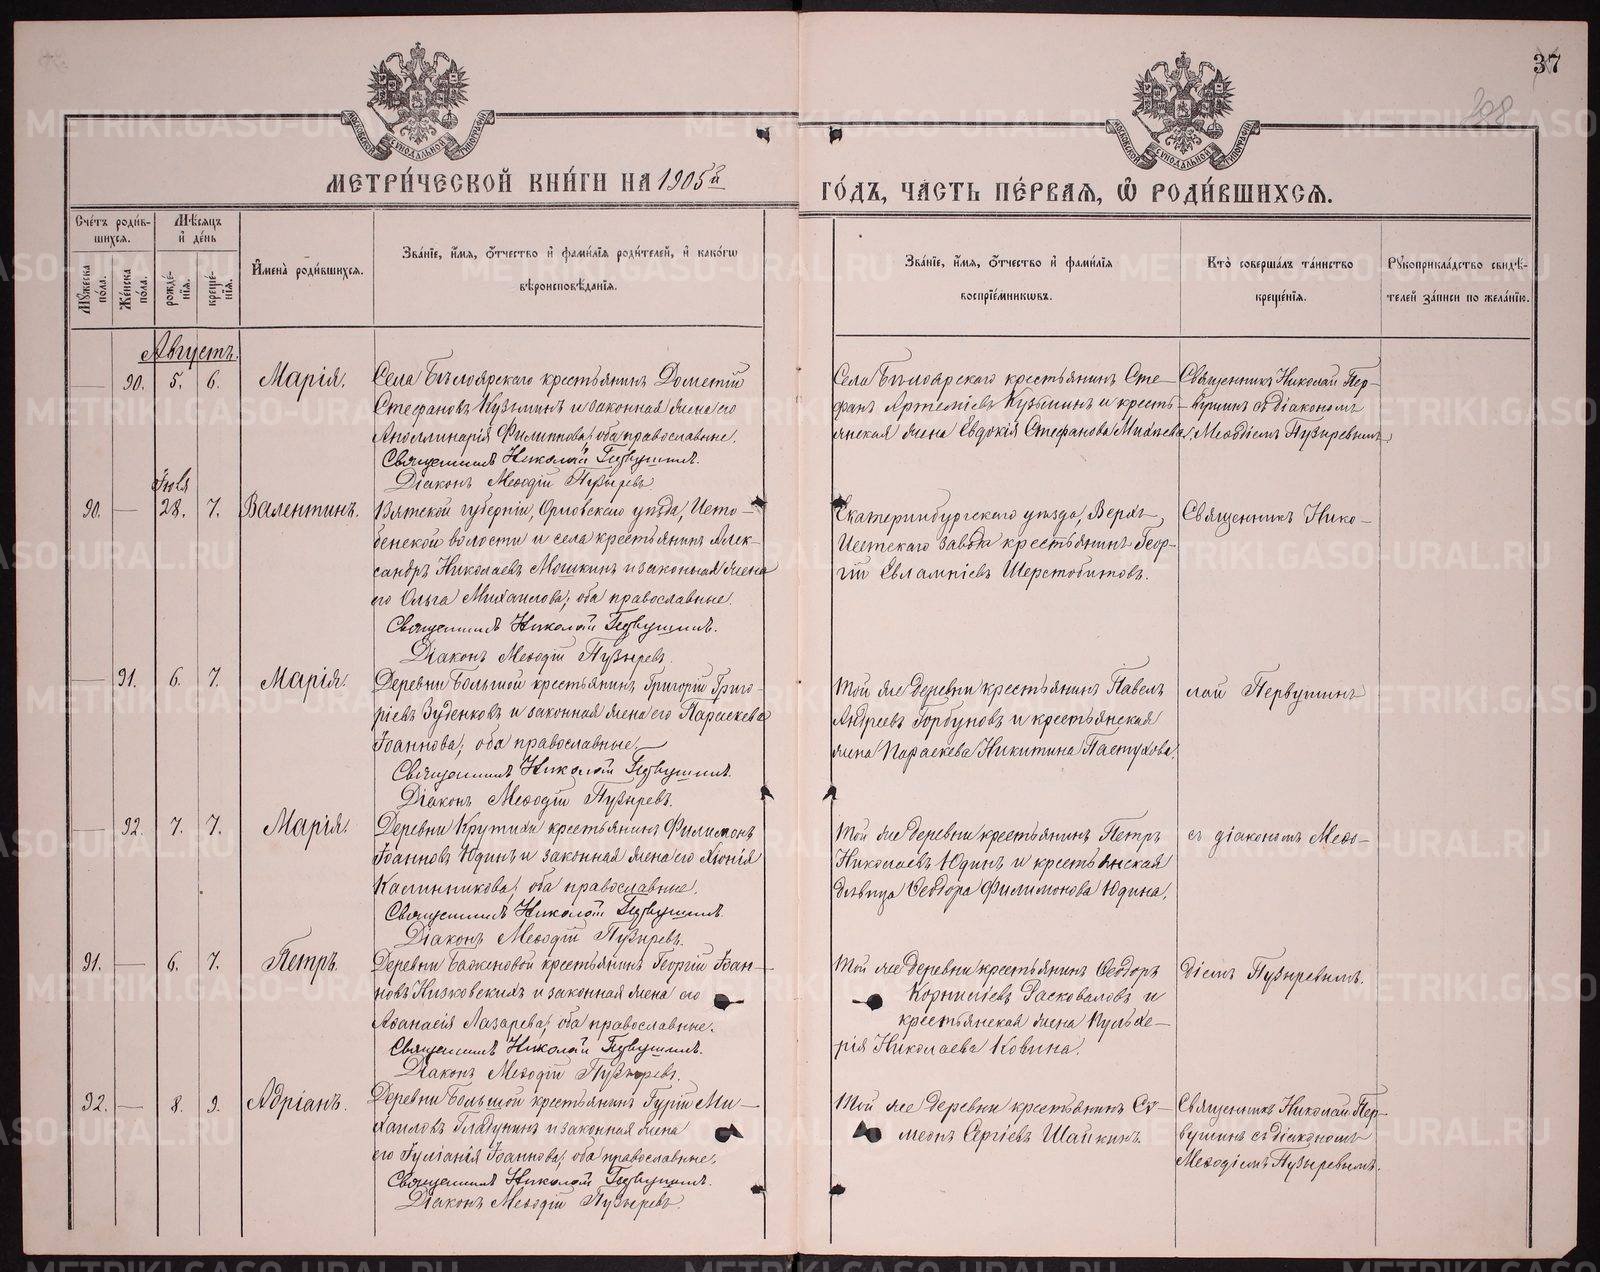 37
398
МЕТРИ́ЧЕСКОЙ КНИ́ГИ НА 1905й
ГО́ДЪ, ЧА́СТЬ ПЕ́РВАѦ, Ѽ РОДИ́ВШИХСѦ.
Сче́тъ роди́в-
шихсѧ.
Мѣ́сѧцъ
и҆ де́нь
Мꙋ́жеска
по́ла.
Же́нска
по́ла.
рожде́-
нїѧ.
креще́-
нїѧ.
И҆мена̀ роди́вшихсѧ.
Зва́нїе, и҆́мѧ, ѻ҆́тчество и҆ фамн́лїѧ роди́телей, и҆ како́гѡ
вѣроисповѣ́данїѧ.
Зва́нїе, и҆́мѧ, ѻ҆́тчество и҆ фами́лїѧ
воспрїе́мникѡвъ.
Кто̀ соверша́лъ та́инство
креще́нїѧ.
Рꙋкоприкла́дство свидѣ́-
телей за́писи по жела́нїю.
Августъ.
— 90. 5. 6. Марія.
Села Бѣлоярскаго крестьянинъ Дометій
Стефановъ Кузьминъ и законная жена его
Аполлинарія Филиппова; оба православные.
Священникъ Николай Первушинъ.
Діаконъ Меѳодій Пузыревъ
Села Бѣлоярскаго крестьянинъ Сте-
фанъ Артеміевъ Кузьминъ и кресть-
янская жена Евдокія Стефанова
Священникъ Николай Пер-
вушинъ съ діакономъ
Меѳодіемъ Пузыревымъ.
Іюля
90. — 28. 7. Валентинъ.
Вятской губерніи, Орловскаго уѣзда, Исто-
бенской волости и села крестьянинъ Алек-
сандръ Николаевъ Мошкинъ и законная жена
его Ольга Михаилова; оба православные.
Священникъ Николай Первушинъ.
Діаконъ Меѳодій Пузыревъ.
Екатеринбургскаго уѣзда, Верхъ-
Исетскаго завода крестьянинъ Геор-
гій Евлампіевъ Шерстобитовъ.
Священникъ Нико-
— 91. 6. 7. Марія.
Деревни Большой крестьянинъ Григорій Григо-
ріевъ Зуденковъ и законная жена его Параскева
Іоаннова; оба православные
Священникъ Николай Первушинъ.
Діаконъ Меѳодій Пузыревъ.
Той же деревни крестьянинъ Павелъ
Андреевъ Горбуновъ и крестьянская
жена Параскева Никитина Пастухова.
лай Первушинъ
— 92. 7. 7. Марія.
Деревни Крутихи крестьянинъ Филимонъ
Іоанновъ Юдинъ и законная жена его Хіонія
Калинникова; оба православные.
Священникъ Николай Первушинъ.
Діаконъ Меѳодій Пузыревъ.
Той же деревни крестьянинъ Петръ
Николаевъ Юдинъ и крестьянская
дѣвица Ѳеодора Филимонова Юдина.
съ діакономъ Меѳо-
91. — 6. 7. Петръ.
Деревни Баженовой крестьянинъ Георгій Іоан-
новъ Низковскихъ и законная жена его
Аѳанасія Лазарева; оба православные.
Священникъ Николай Первушинъ.
Діаконъ Меѳодій Пузыревъ.
Той же деревни крестьянинъ Ѳеодоръ
Корниліевъ Расковаловъ и
крестьянская жена Пульхе-
рія Николаева Ковина.
діемъ Пузыревымъ.
92. — 8. 9. Адріанъ.
Деревни Большой крестьянинъ Гурій Ми-
хаиловъ Гладунинъ и законная жена
его Іуліанія Іоаннова; оба православные.
Священникъ Николай Первушинъ.
Діаконъ Меѳодій Пузыревъ.
Той же деревни крестьянинъ Сѵ-
меонъ Сергіевъ Шайкинъ.
Священникъ Николай Пер-
вушинъ съ діакономъ
Меѳодіемъ Пузыревымъ.
METRIKI.GASO-URAL.RU